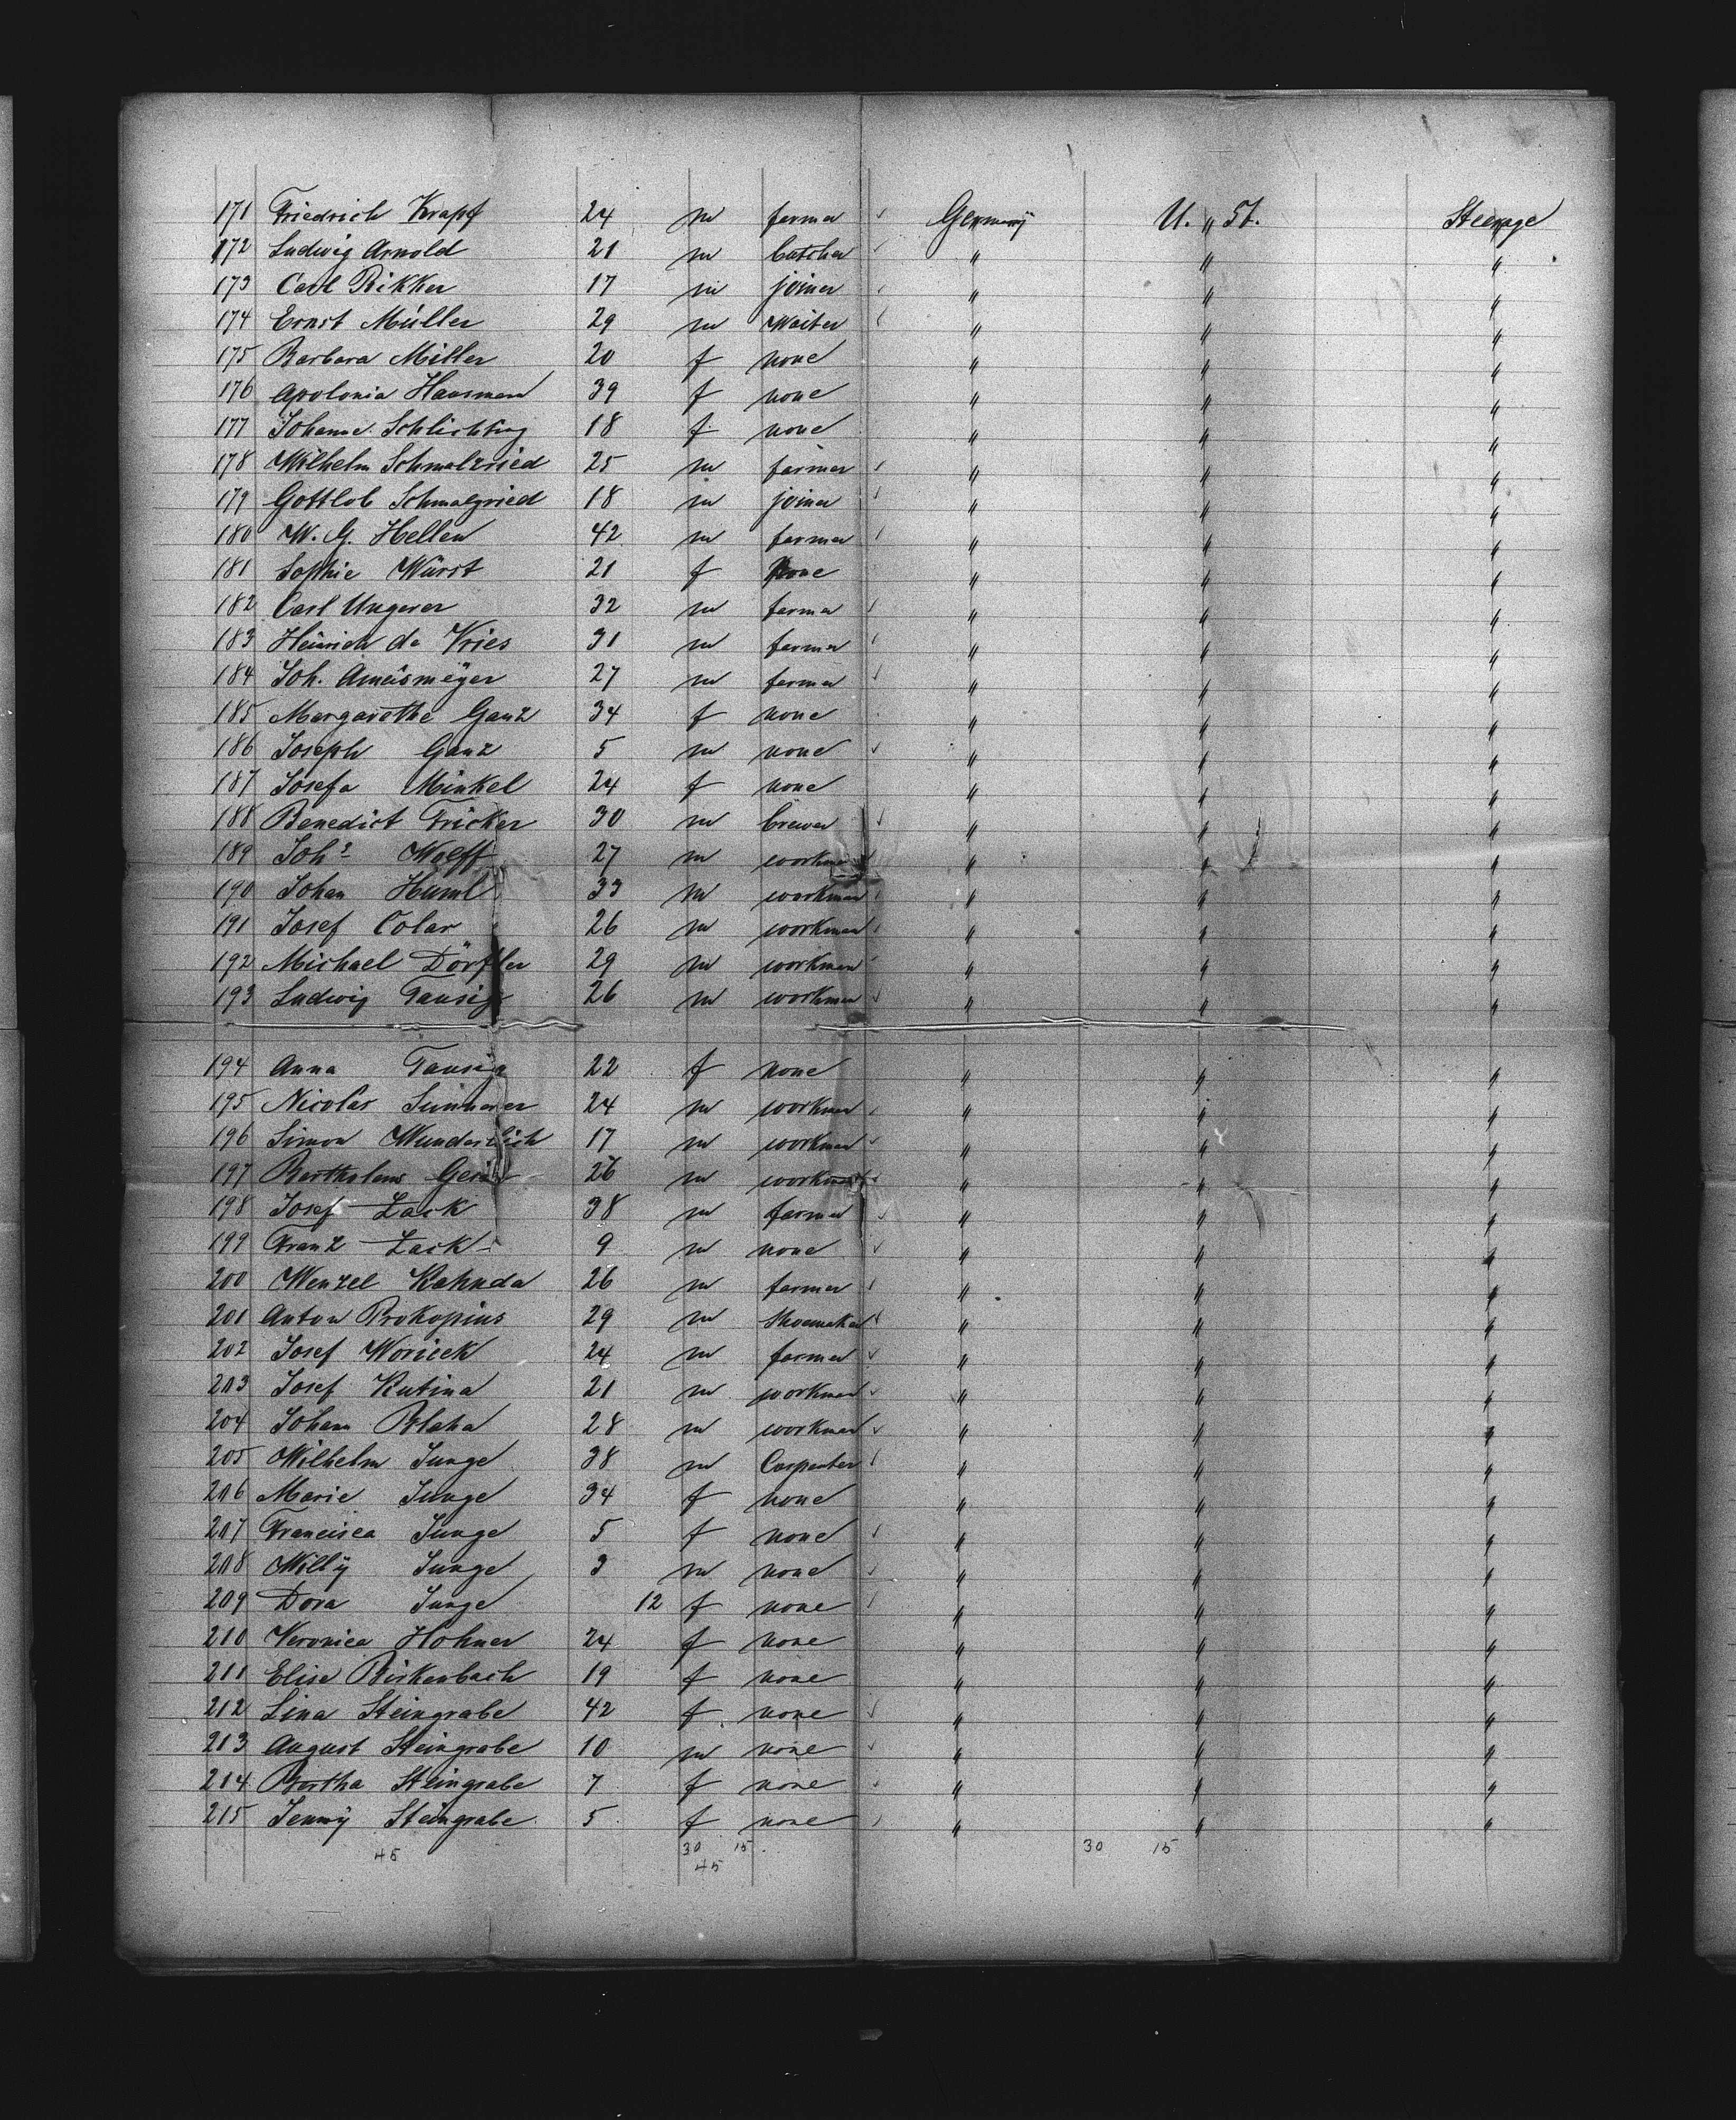 171 Friedrich Krapf 24 m farmer Germany U. St. Steerage
172 Ludwig Arnold 21 m butcher " " "
173 Carl Rikker 17 m joiner " " "
174 Ernst Müller 29 m Waiter " " "
175 Barbara Miller 20 f none " " "
176 Apolonia Hausmann 39 f none " " "
177 Johanne Schlichting 18 f none " " "
178 Wilhelm Schmalzried 25 m farmer " " "
179 Gottlob Schmalzried 18 m joiner " " "
180 W. G. Hellen 42 m farmer " " "
181 Sophie Würst 21 f None " " "
182 Carl Ungerer 32 m farmer " " "
183 Heinrich de Vries 31 m farmer " " "
184 Joh. Ameismeÿer 27 m farmer " " "
185 Margarethe Ganz 34 f none " " "
186 Joseph Ganz 5 m none " " "
187 Josefa Minkel 24 f none " " "
188 Benedict Fricker 30 m brewer " " "
189 Joh? Wolff 27 m workman " " "
190 Johan Huml 33 m workman " " "
191 Josef Colar 26 m workman " " "
192 Michael Dörfler 29 m workman " " "
193 Ludwig Tausig 26 m workman " " "
194 Anna Tausig 22 f none " " "
195 Nicolas 24 m workman " " "
196 Simon Wunderlich 17 m workman " " "
197 26 m workman " " "
198 Josef Lack 38 m farmer " " "
199 Franz Lack 9 m none " " "
200 Wenzel Kahuda 26 m farmer " " "
201 Anton Prokopius 29 m Shoemaker " " "
202 Josef Woricek 24 m farmer " " "
203 Josef Kutina 21 m workman " " "
204 Johann Blaha 28 m workman " " "
205 Wilhelm Junge 38 m Carpenter " " "
206 Marie Junge 34 f none " " "
207 Francisca Junge 5 f none " " "
208 Willÿ Junge 3 m none " " "
209 Dora Junge 12 f none " " "
210 Veronica Hohner 24 f none " " "
211 Elise Birkenbach 19 f none " " "
212 Lina Steingrabe 42 f none " " "
213 August Steingrabe 10 m none " " "
214 Bertha Steingrabe 7 f none " " "
215 Jennÿ Steingrabe 5 f none " " "
45 30 15 30 15
45